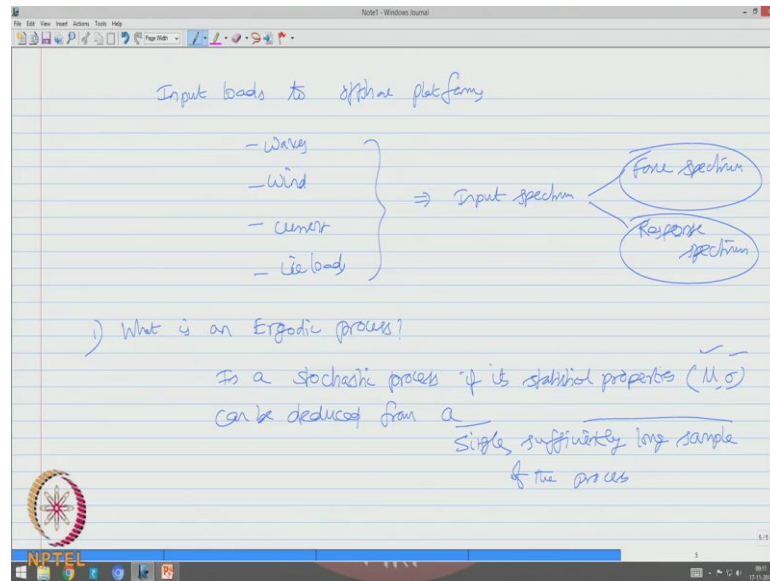 Note1 - Windows Journal
File Edit View Insert Actions Tools Help
Page Width
Input loads to offshore platforms
- waves
- wind
- current
- ice loads
⇒ Input spectrum
Force spectrum
Response spectrum
1) What is an Ergodic process?
Is a stochastic process if its statistical properties (μ, σ)
can be deduced from a
single, sufficiently long sample
of the process
NPTEL
5/5
5
09:11